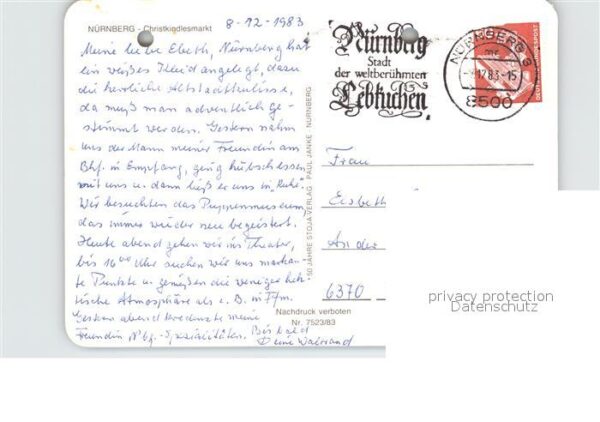 NÜRNBERG - Christkindlesmarkt
8-12-1983
Meine liebe Elseth, Nürnberg hat
ein weißes Kleid angelegt, dazu
die herrliche Altstadtkulisse,
da muß man adventlich ge-
stimmt werden. Gestern nahm
uns der Mann meiner Freundin am
Bhf. in Empfang, ging hübsch essen
mit uns u. dann ließ er uns in "Ruhe".
Wir besuchten das Puppenmuseum,
das immer wieder neu begeistert.
Heute abend gehen wir ins Theater,
bis 16 00 Uhr suchen wir uns markan-
te Punkte u. genießen die weniger hek-
tische Atmosphäre als z. B. in Ffm.
Gestern abend kredenzte meine
Freundin Nbg.-Spezialitäten. Bis bald
Deine Waltraud
Nachdruck verboten
Nr. 7523/83
*50 JAHRE STOJA-VERLAG PAUL JANKE NÜRNBERG
Nürnberg
Stadt
der weltberühmten
Lebkuchen
NÜRNBERG 3
12.83-15
8500
DEUTSCHE BUNDESPOST
Frau
Elsbeth
An der
6370
privacy protection
Datenschutz